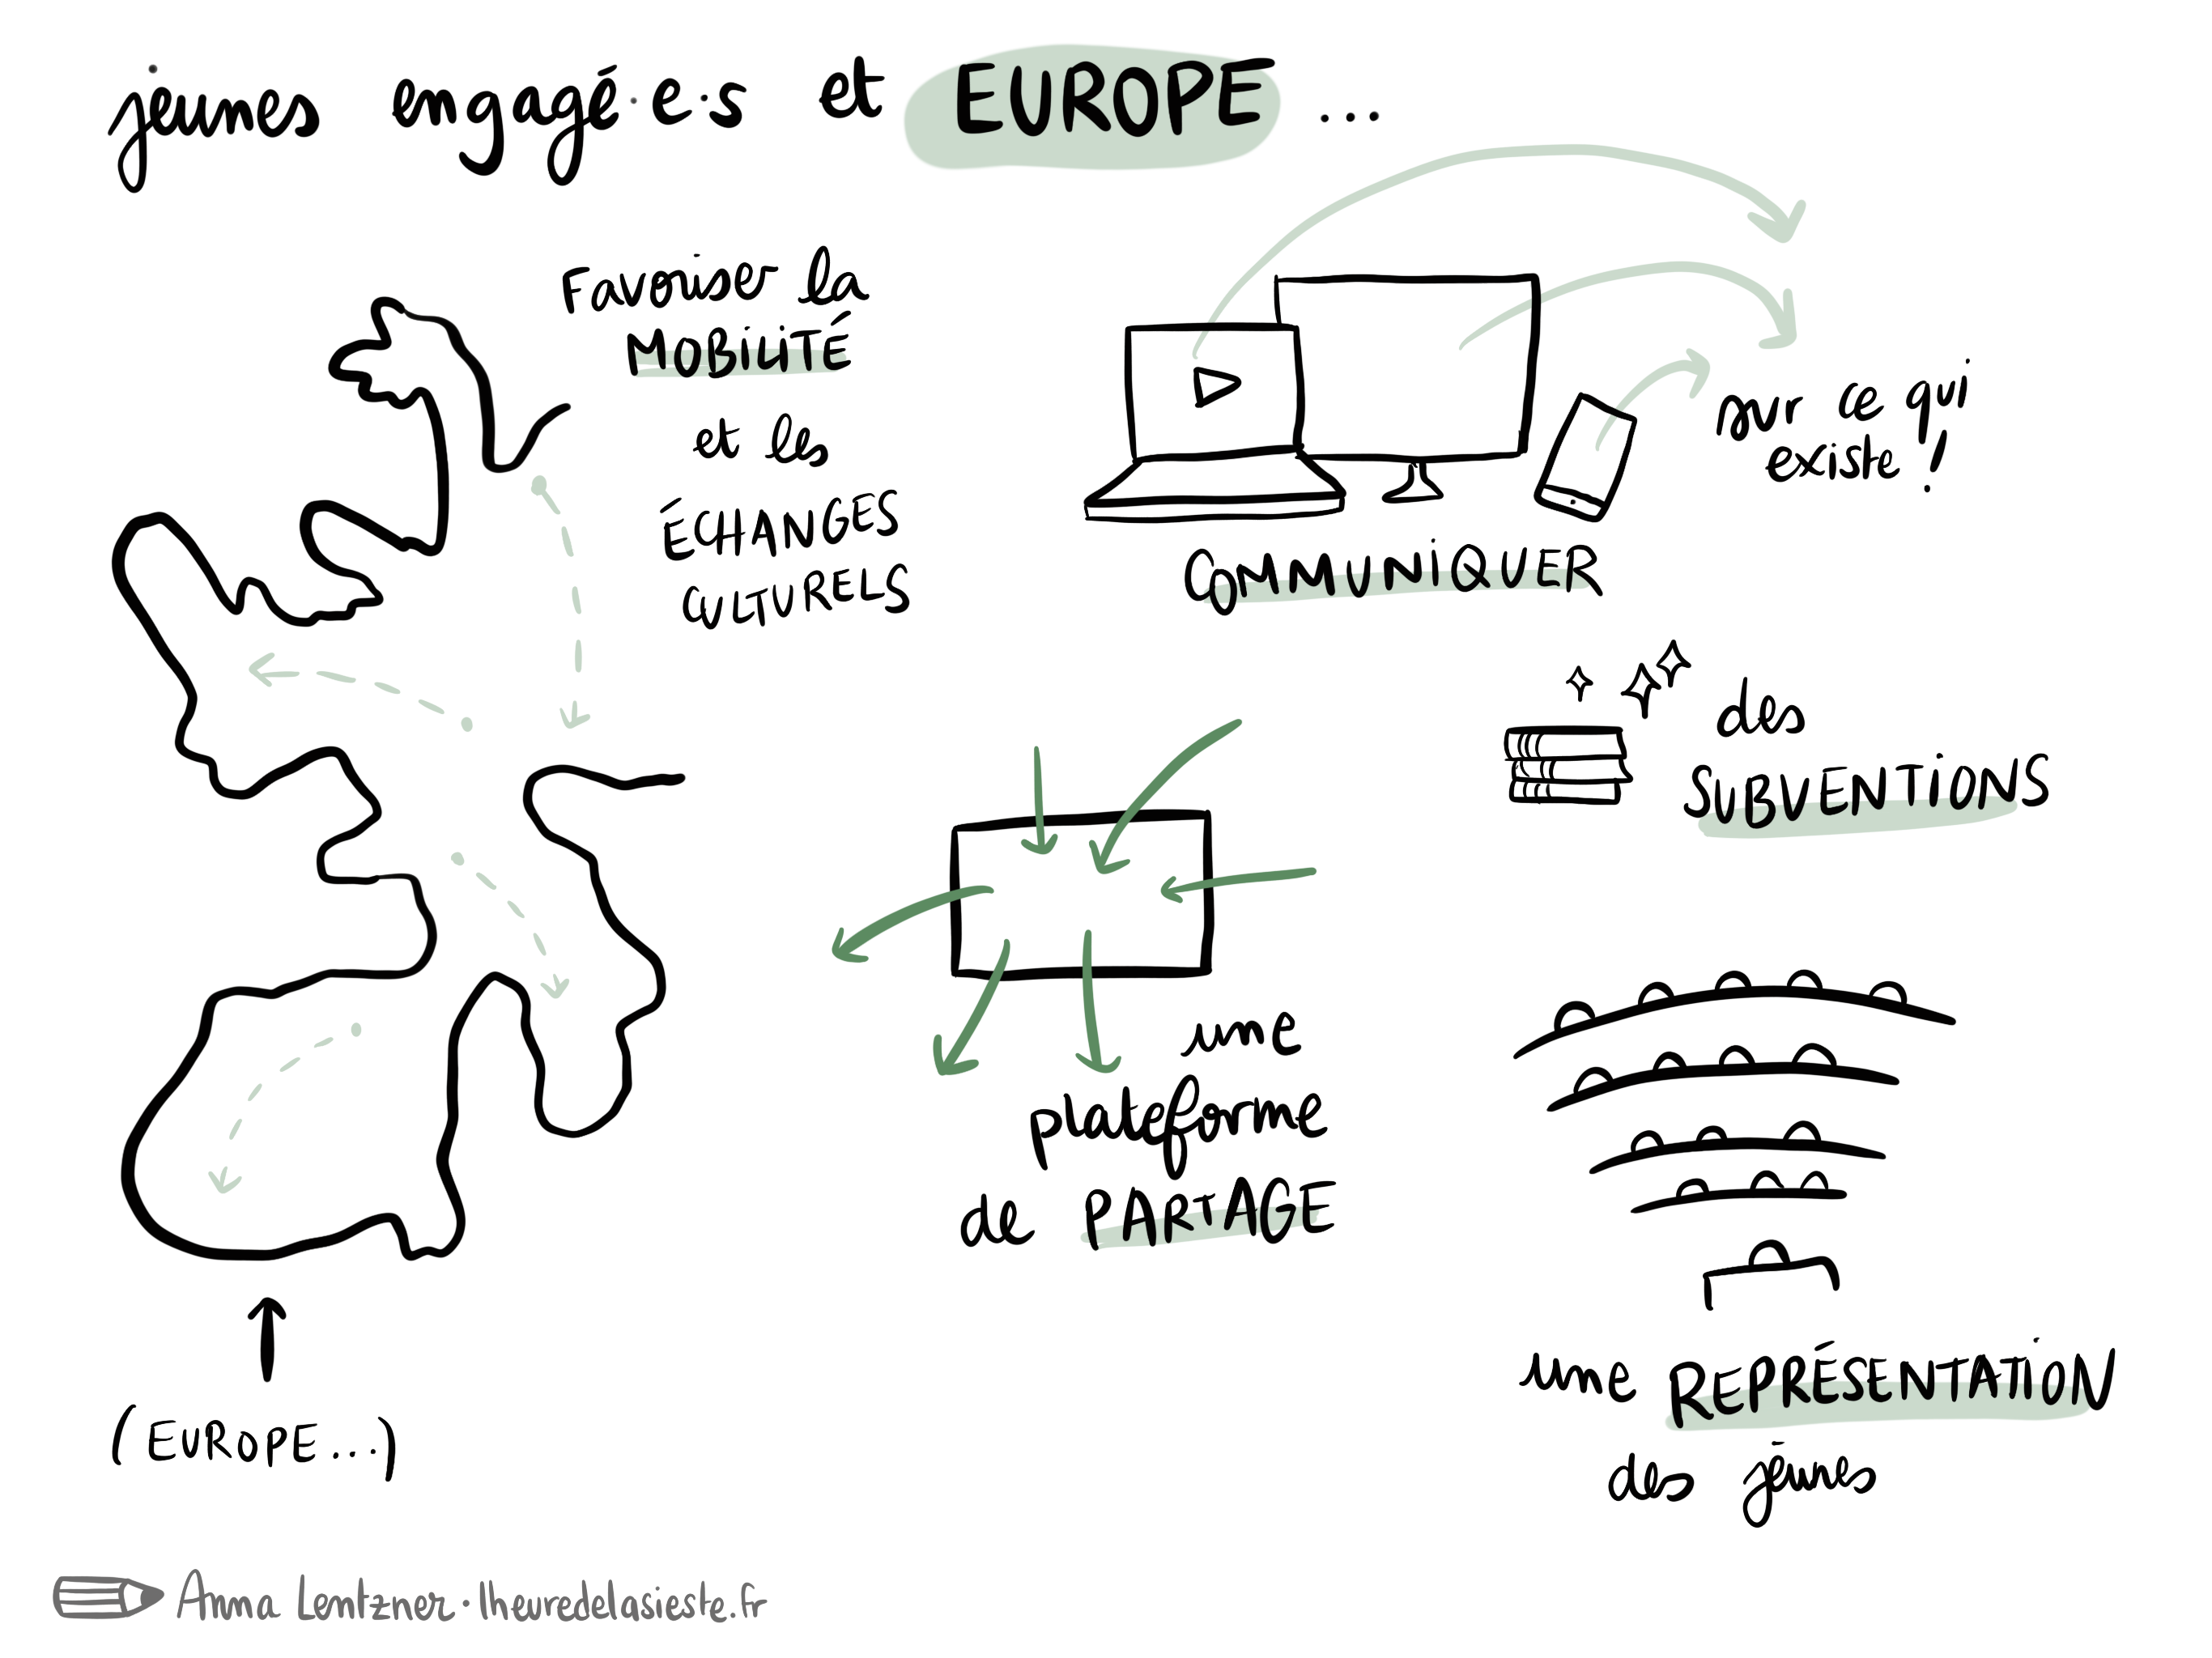 jeunes engagé·e·s et EUROPE ...
Favoriser la
MOBILITÉ
et les
ÉCHANGES
CULTURELS
sur ce qui
existe !
COMMUNIQUER
des
SUBVENTIONS
une
plateforme
de PARTAGE
une REPRÉSENTATION
des jeunes
(EUROPE...)
Anna Lentzner · lheuredelasieste.fr